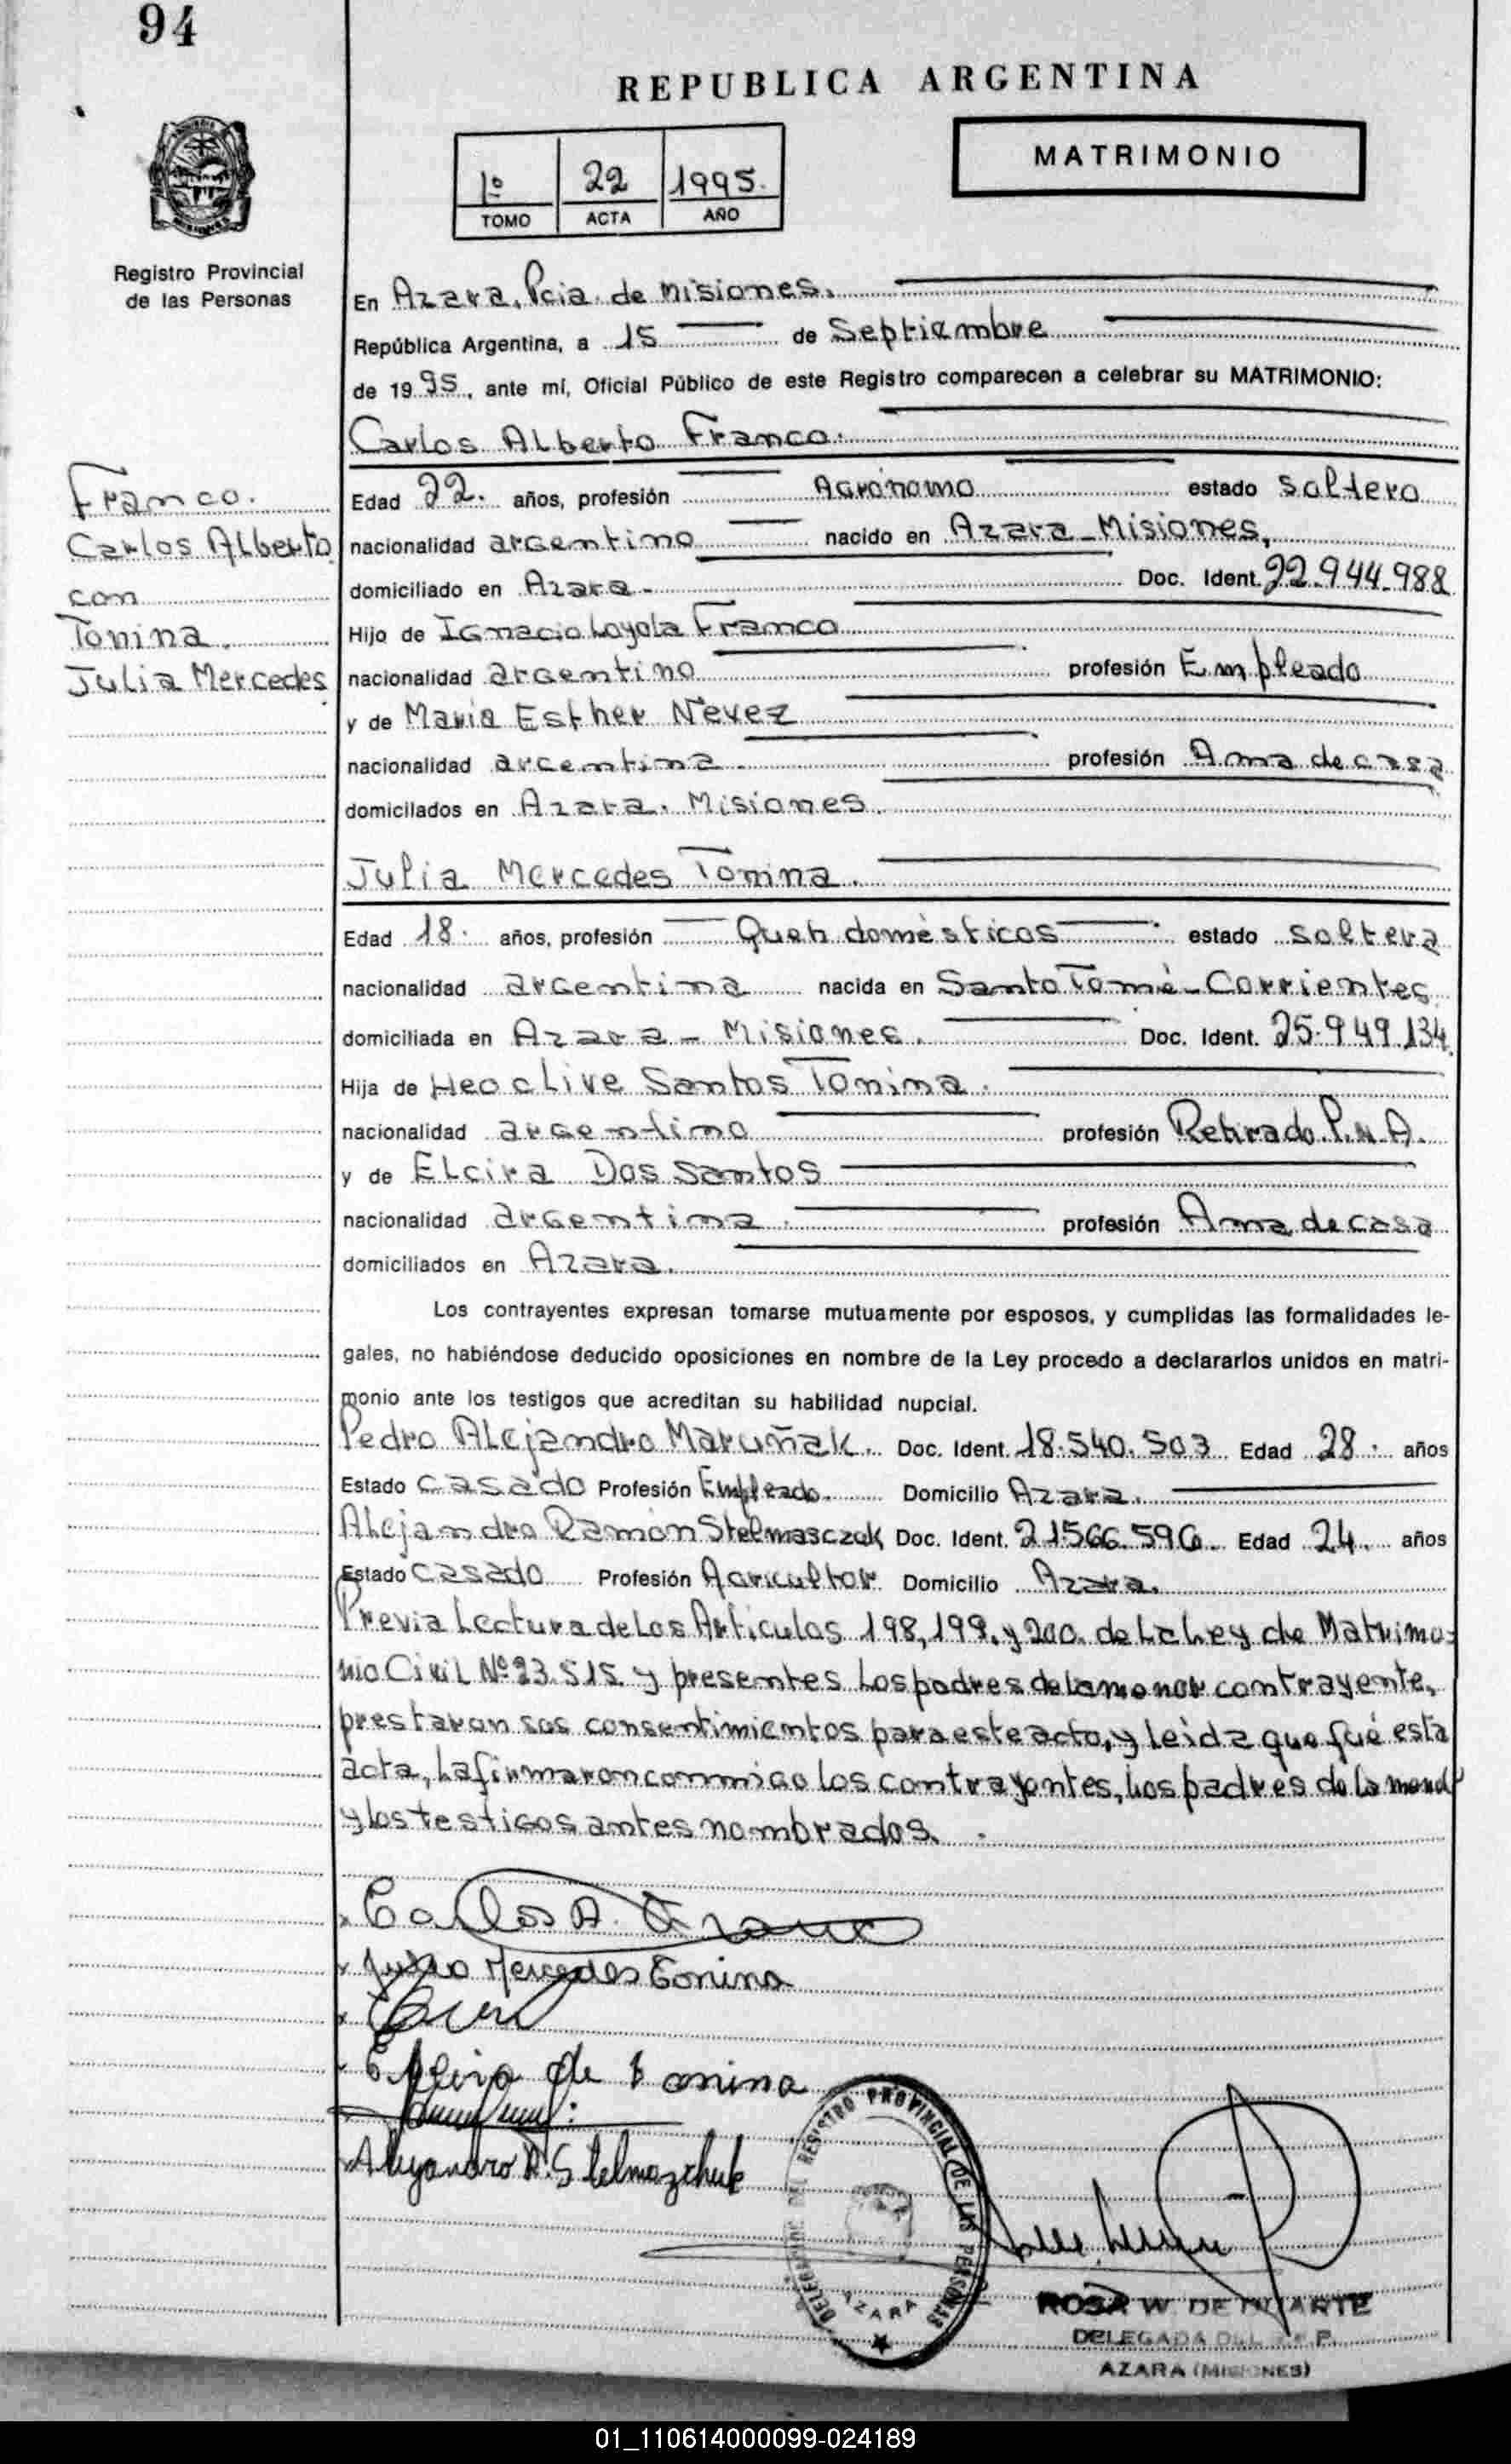 94
REPUBLICA ARGENTINA
MATRIMONIO
1º 22 1995.
TOMO ACTA AÑO
Registro Provincial
de las Personas
En Azara, Pcia. de Misiones.
República Argentina, a 15 de Septiembre
de 1995, ante mí, Oficial Público de este Registro comparecen a celebrar su MATRIMONIO:
Carlos Alberto Franco.
Franco.
Carlos Alberto
con
Tonina.
Julia Mercedes
Edad 22. años, profesión Agrónomo estado soltero
nacionalidad argentino nacido en Azara - Misiones,
domiciliado en Azara - Doc. Ident. 22.944.988
Hijo de Ignacio Loyola Franco
nacionalidad argentino profesión Empleado
y de María Esther Nevez
nacionalidad argentina profesión Ama de casa
domicilados en Azara. Misiones.
Julia Mercedes Tonina.
Edad 18. años, profesión Queh domésticos estado soltera
nacionalidad argentina nacida en Santo Tomé - Corrientes
domiciliada en Azara - Misiones. Doc. Ident. 25.949.134
Hija de Heoclive Santos Tonina.
nacionalidad argentino profesión Retirado P.N.A.
y de Elcira Dos Santos
nacionalidad argentina. profesión Ama de casa
domiciliados en Azara.
Los contrayentes expresan tomarse mutuamente por esposos, y cumplidas las formalidades le-
gales, no habiéndose deducido oposiciones en nombre de la Ley procedo a declararlos unidos en matri-
monio ante los testigos que acreditan su habilidad nupcial.
Pedro Alejandro Maruñak. Doc. Ident. 18.540.503 Edad 28. años
Estado casado Profesión Empleado. Domicilio Azara.
Alejandro Ramón Stelmasczuk Doc. Ident. 21.566.596. Edad 24. años
Estado casado Profesión Agricultor. Domicilio Azara.
Previa Lectura de Los Artículos 198, 199, y 200. de La Ley de Matrimo-
nio Civil Nº 23.515. y presentes Los padres de la menor contrayente,
prestaron sus consentimientos para este acto, y leída que fué esta
acta, La firmaron conmigo los contrayentes, Los padres de la menor
y los testigos antes nombrados.
Carlos A. Franco
Julia Mercedes Tonina
Elcira de Tonina
Alejandro R. Stelmazchuk
DELEGACION DEL REGISTRO PROVINCIAL DE LAS PERSONAS
AZARA
ROSA W. DE DUARTE
DELEGADA DEL R.P.P.
AZARA (MISIONES)
01_110614000099-024189